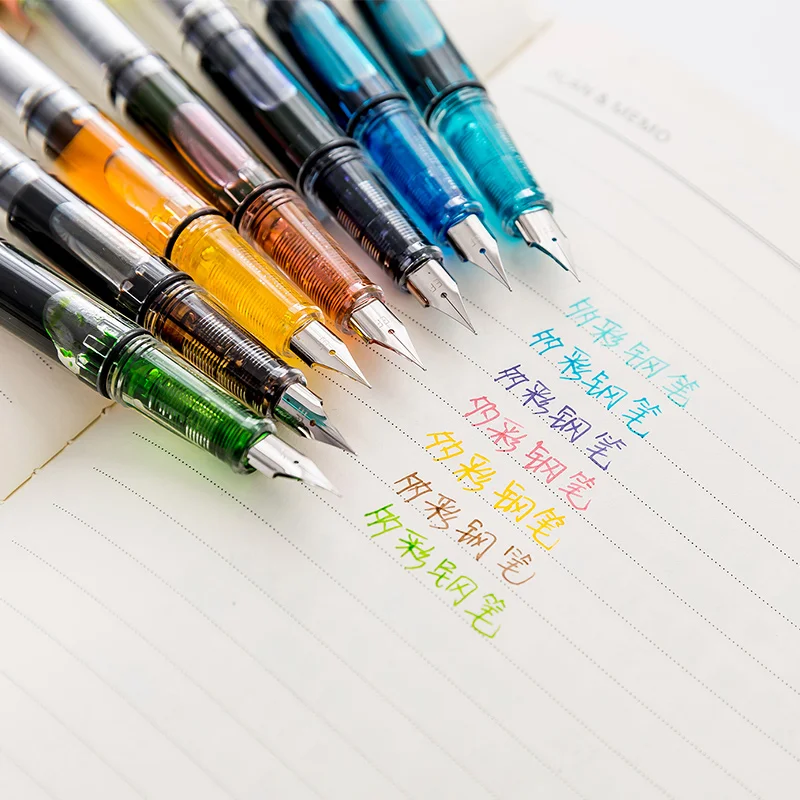 PLAN & MEMO
多彩钢笔
多彩钢笔
多彩钢笔
多彩钢笔
多彩钢笔
多彩钢笔
多彩钢笔